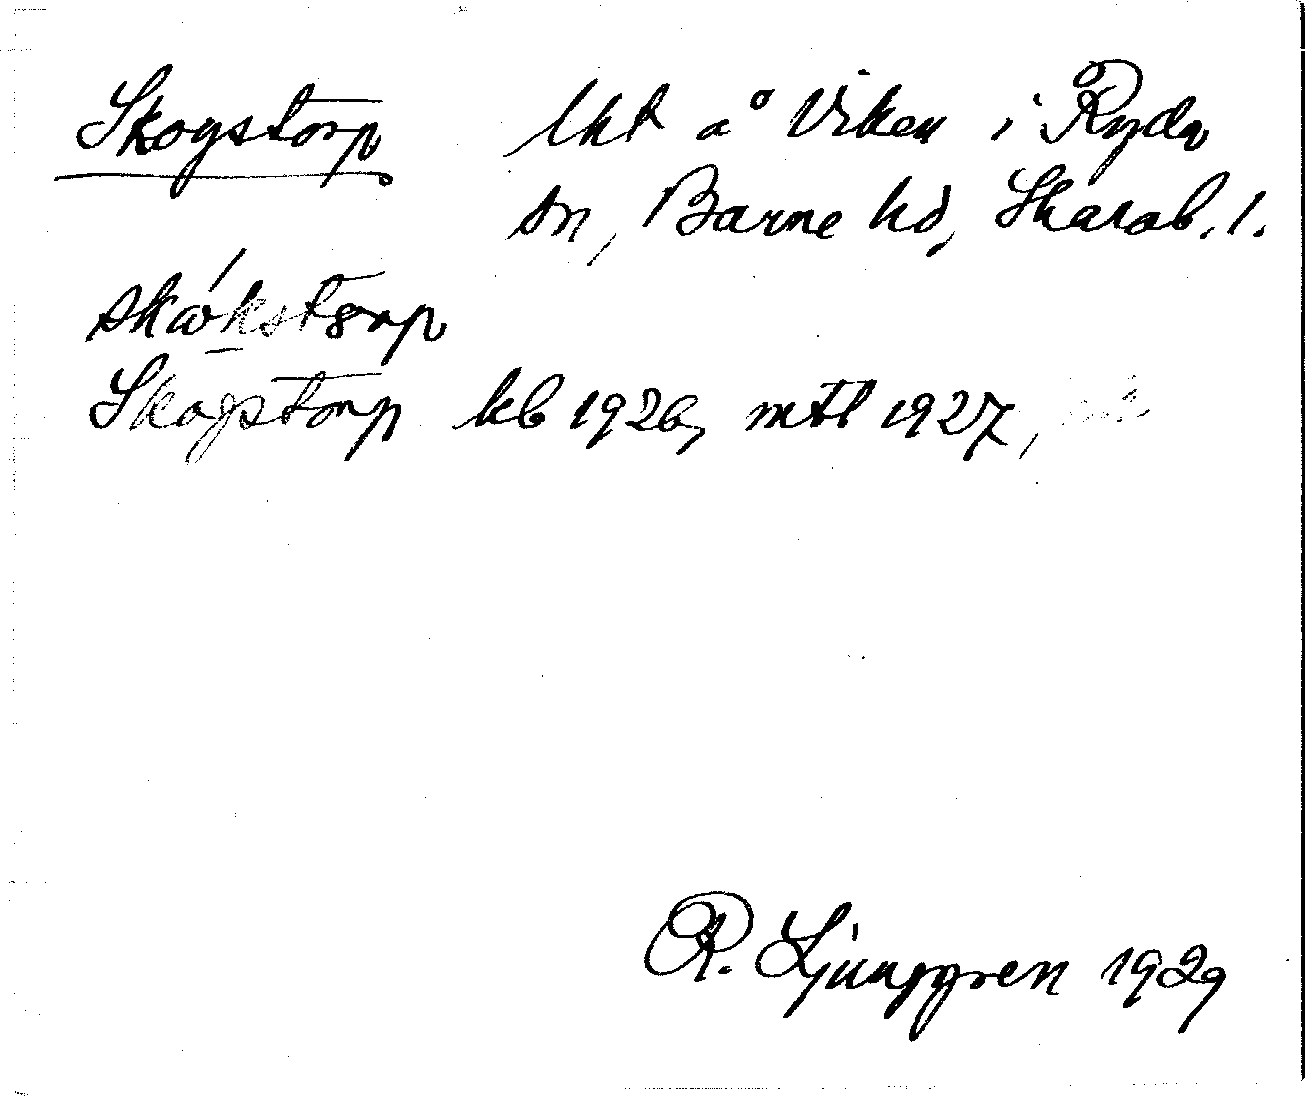 Skogstorp lht å Viken i Ryda
sn, Barne hd, Skarab. l.
Skogstorp kb 1926, mtl 1927,
R. Ljunggren 1929